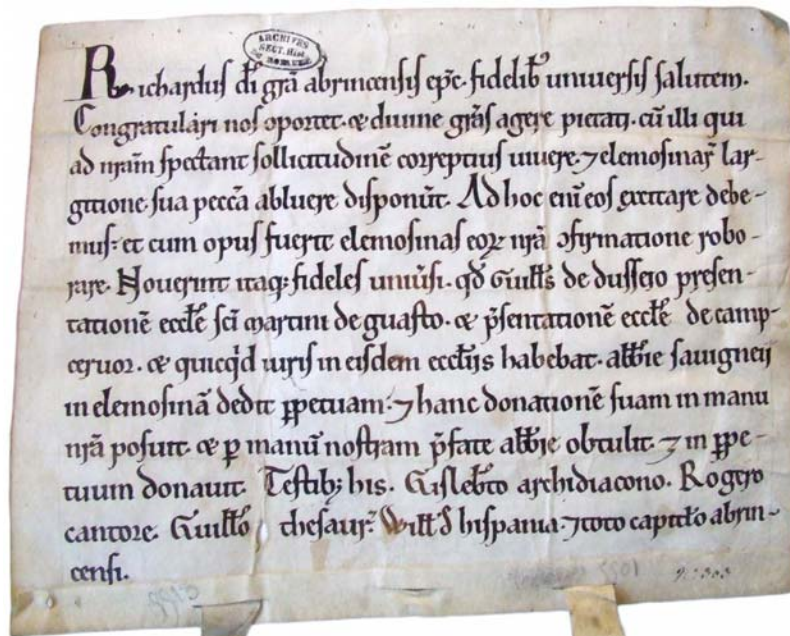 ARCHIVES
SECT. Hist.
Richardus di grã abrincensis epc. fidelib' uniuersis salutem.
Congratulari nos oportet. & diuine grãs agere pietati. cũ illi qui
ad nrãm spectant sollicitudinẽ correptius uiuere. ⁊ elemosinaꝝ lar-
gitione sua peccã abluere disponũt. Ad hoc eni eos excitare debe-
mus: et cum opus fuerit elemosinas eoꝝ nrã ↄfirmatione robo-
rare. Nouerint itaq: fideles uniu'si. qd' Guill's de dusseio presen-
tationẽ eccl'e sci martini de guasto. & p'sentationẽ eccl'e de camp-
ceruor. & quicq'd iuris in eisdem eccl'ijs habebat. abb'ie sauigneij
in elemosinã dedit ꝑpetuam: ⁊ hanc donationẽ suam in manu
nrã posuit. & ꝑ manũ nostram p'fate abb'ie obtulit. ⁊ in ꝑpe-
tuum donauit. Testib; his. Gisleb'to archidiacono. Rogero
cantore. Guill'o thesaur'. Will' d' hispania. ⁊ toto capitl'o abrin-
censi.